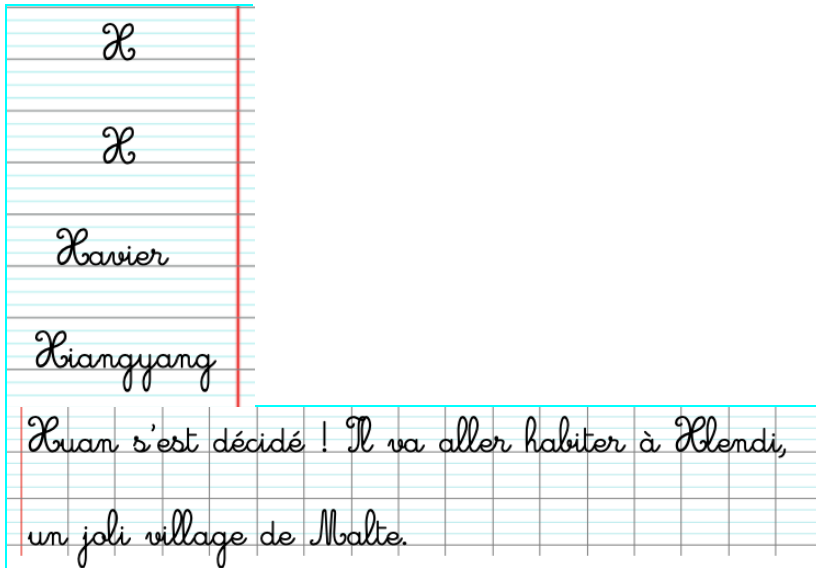 X
X
Xavier
Xiangyang
Xuan s'est décidé ! Il va aller habiter à Xlendi,
un joli village de Malte.